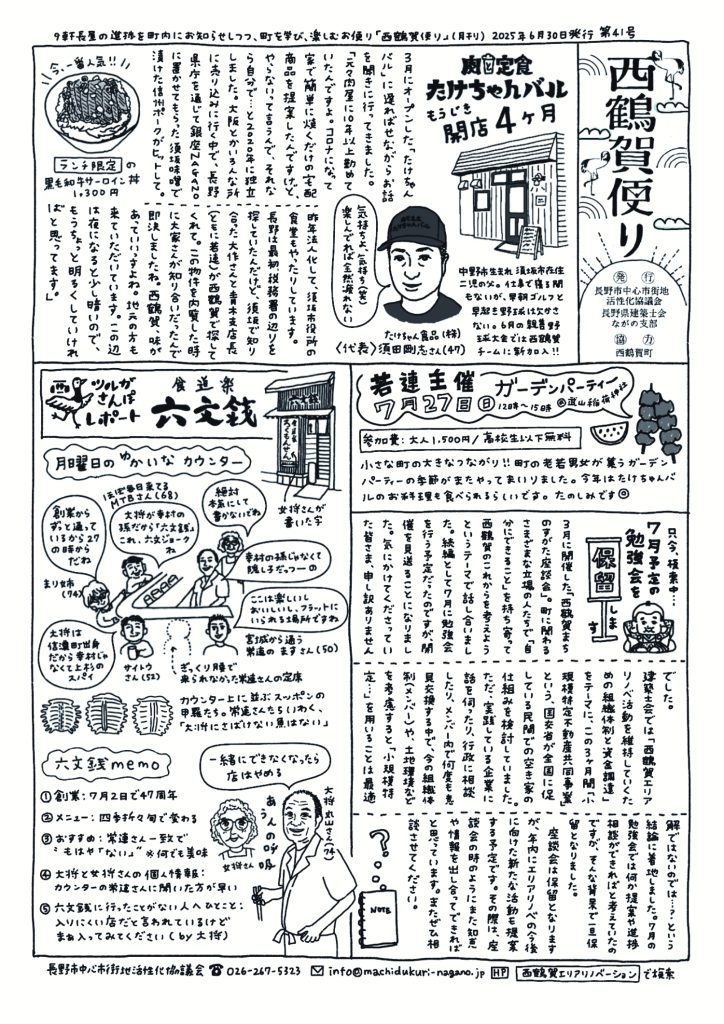 9軒長屋の進捗を町内にお知らせしつつ、町を学び、楽しむお便り「西鶴賀便り」(月刊) 2025年6月30日発行 第41号
西鶴賀便り
発行
長野市中心市街地
活性化協議会
長野県建築士会
ながの支部
協力
西鶴賀町
肉定食
たけちゃんバル
もうじき
開店4ヶ月
3月にオープンした「たけちゃん
バル」に遅ればせながらお話
を聞きに行ってきました。
「元々肉屋に10年以上勤めて
いたんですよ。コロナになって
家で簡単に焼くだけの宅配
商品を提案したんですけど、
やらないって言うんで、それな
ら自分で…と2020年に独立
しました。大阪とかいろんな所
に売り込みに行く中で、長野
県庁を通して銀座NAGANO
に置かせてもらった須坂味噌で
漬けた信州ポークがヒットして。
昨年法人化して、須坂市役所の
食堂もやったりしています。
長野は最初、税務署の辺りを
探していたんだけど、須坂で知り
合った大作さんと青木支店長
(ともに若連)が西鶴賀で探して
くれて。この物件を内覧した時
に大家さんが知り合いだったんで
即決しましたね。西鶴賀、味が
あっていいっすよね。地元の方も
来ていただいています。この辺
は夜になると少し暗いので、
もうちょっと明るくしていけれ
ばと思ってます。」
今、一番人気!!
ランチ限定の
黒毛和牛サーロイン丼
1,300円
気持ちよ、気持ち(笑)
楽しんでれば全然疲れない
たけちゃん食品(株)
〈代表〉須田剛志さん(47)
中野市生まれ須坂市在住
二児の父。仕事で寝る間
もないが、早朝ゴルフと
早起き野球は欠かさ
ない。6月の親善野
球大会では西鶴賀
チームに新加入!!
若連主催 ガーデンパーティー
7月27日日 12時〜15時 @武山稲荷神社
参加費:大人1,500円/高校生以下無料
小さな町の大きなつながり!!町の老若男女が集うガーデン
パーティーの季節がまたやってまいりました。今年はたけちゃんバ
ルのお料理も食べられるらしいです。たのしみです◎
ツルガ
さんぽ
レポート
食道楽
六文銭
女将さんが
書いた字
月曜日のゆかいなカウンター
創業から
ずっと通って
いるから27
の時から
だね
まり姉(74)
ほぼ毎日来てる
MTBさん(68)
大将が幸村の
孫だから「六文銭」
これ、六文ジョーク
ね
絶対
本気にして
書かないでね
幸村の孫じゃなくて
隠し子だっつーの
ここは楽しいし
おいしいし、フラットに
いられる場所ですね
宮城から通う
常連のますさん(50)
大将は
信濃町出身
だから幸村じゃ
なくて上杉の
スパイ
サイトウ
さん(52)
ぎっくり腰で
来られなかった常連さんの定席
カウンター上に並ぶスッポンの
甲羅たち。常連さんたちいわく、
「大将にさばけない魚はない」
六文銭memo
①創業:7月2日で47周年
②メニュー:四季折々旬で変わる
③おすすめ:常連さん一致で
“もはや「ない」”※何でも美味
④大将と女将さんの個人情報:
カウンターの常連さんに聞いた方が早い
⑤六文銭に行ったことがない人へひとこと:
入りにくい店だと言われているけど
まぁ入ってみてください(by大将)
一緒にできなくなったら
店はやめる
あうんの呼吸
女将さん
大将 丸山さん(74)
只今、模索中…
7月予定の
勉強会を
保留
します
3月に開催した「西鶴賀まち
のすがた座談会」。町に関わる
さまざまな立場の人たちで、自
分にできることを持ち寄って
西鶴賀のこれからを考えよう
というテーマで話し合いまし
た。続編として7月に勉強会
を行う予定だったのですが、開
催を見送ることになりまし
た。気にかけてくださってい
た皆さま、申し訳ありません
でした。
建築士会では「西鶴賀エリア
リノベ活動を維持していくた
めの組織体制と資金調達」
をテーマに、この3ヶ月間、「小
規模特定不動産共同事業」
という、国交省が全国に促
している民間での空き家の
仕組みを検討していました。
ただ、実践している企業に
話を伺ったり、行政に相談
したり、メンバー内で何度も意
見交換する中で、今の組織体
制(メンバー)や、土地環境など
を考慮すると「小規模特
定…」を用いることは最適
解ではないのでは…?という
結論に着地しました。7月の
勉強会では何か提案や進捗
相談ができればと考えていたの
ですが、そんな背景で一旦保
留となりました。
座談会は保留となります
が、年内にエリアリノベの今後
に向けた新たな活動も提案
する予定です。その際は、座
談会の時のようにまた知恵
や情報を出し合ってできれば
と思っています。またぜひ相
談させてください。
NOTE
長野市中心市街地活性化協議会 ☎026-267-5323 ✉info@machidukuri-nagano.jp HP 西鶴賀エリアリノベーション で検索